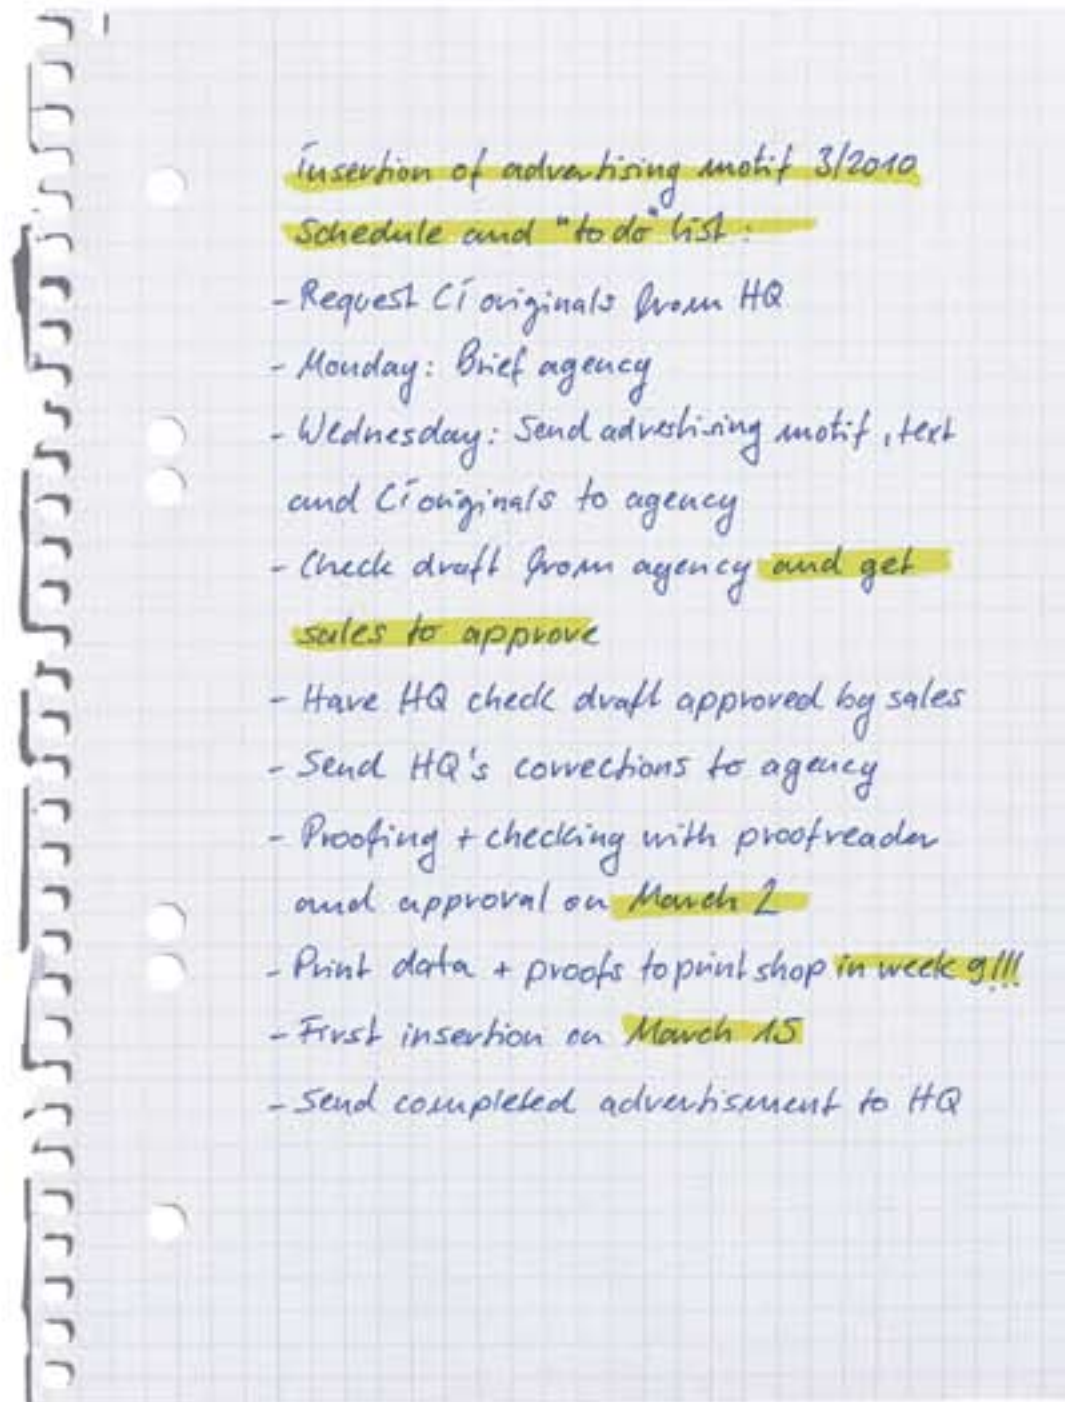 Insertion of advertising motif 3/2010
Schedule and "to do" list:
- Request CI originals from HQ
- Monday: Brief agency
- Wednesday: Send advertising motif, text
and CI originals to agency
- Check draft from agency and get
sales to approve
- Have HQ check draft approved by sales
- Send HQ's corrections to agency
- Proofing + checking with proofreader
and approval on March 2
- Print data + proofs to print shop in week 9!!!
- First insertion on March 15
- Send completed advertisment to HQ